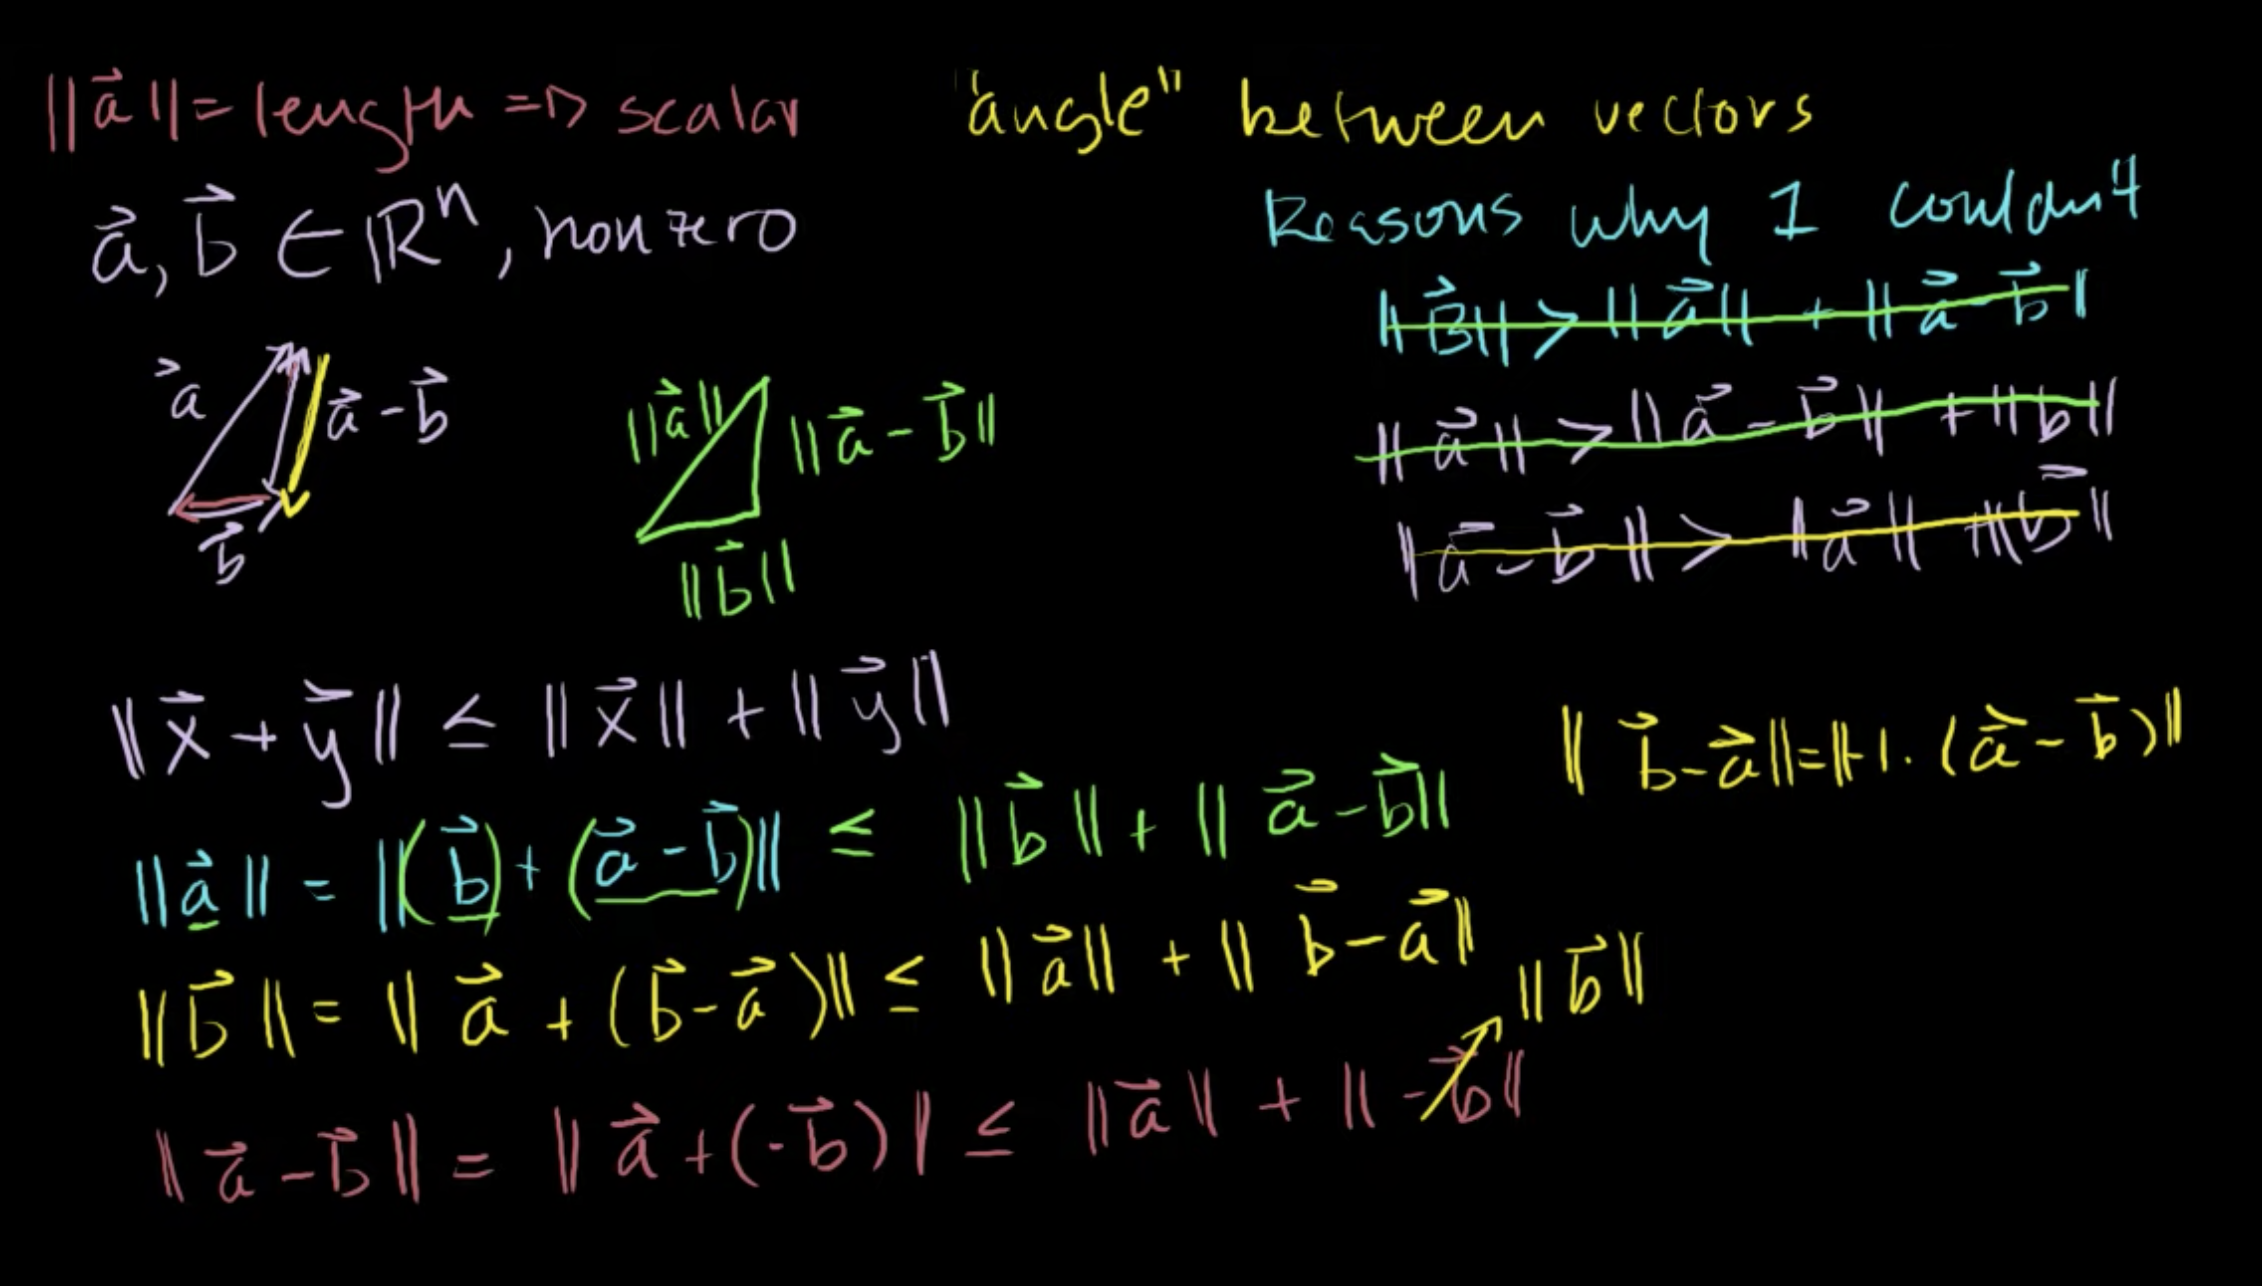 ‖a⃗‖ = length => scalar
"angle" between vectors
a⃗, b⃗ ∈ ℝⁿ, nonzero
Reasons why I couldn't
‖B⃗‖ > ‖a⃗‖ + ‖a⃗ - b⃗‖
‖a⃗‖ > ‖a⃗ - b⃗‖ + ‖b‖
‖a⃗ - b⃗‖ > ‖a⃗‖ + ‖b⃗‖
a⃗
a⃗ - b⃗
b⃗
‖a⃗‖
‖a⃗ - b⃗‖
‖b⃗‖
‖x⃗ + y⃗‖ ≤ ‖x⃗‖ + ‖y⃗‖
‖b⃗ - a⃗‖ = ‖-1 · (a⃗ - b⃗)‖
‖a⃗‖ = ‖(b⃗) + (a⃗ - b⃗)‖ ≤ ‖b⃗‖ + ‖a⃗ - b⃗‖
‖b⃗‖ = ‖a⃗ + (b⃗ - a⃗)‖ ≤ ‖a⃗‖ + ‖b⃗ - a⃗‖
‖b⃗‖
‖a⃗ - b⃗‖ = ‖a⃗ + (-b⃗)‖ ≤ ‖a⃗‖ + ‖-b⃗‖